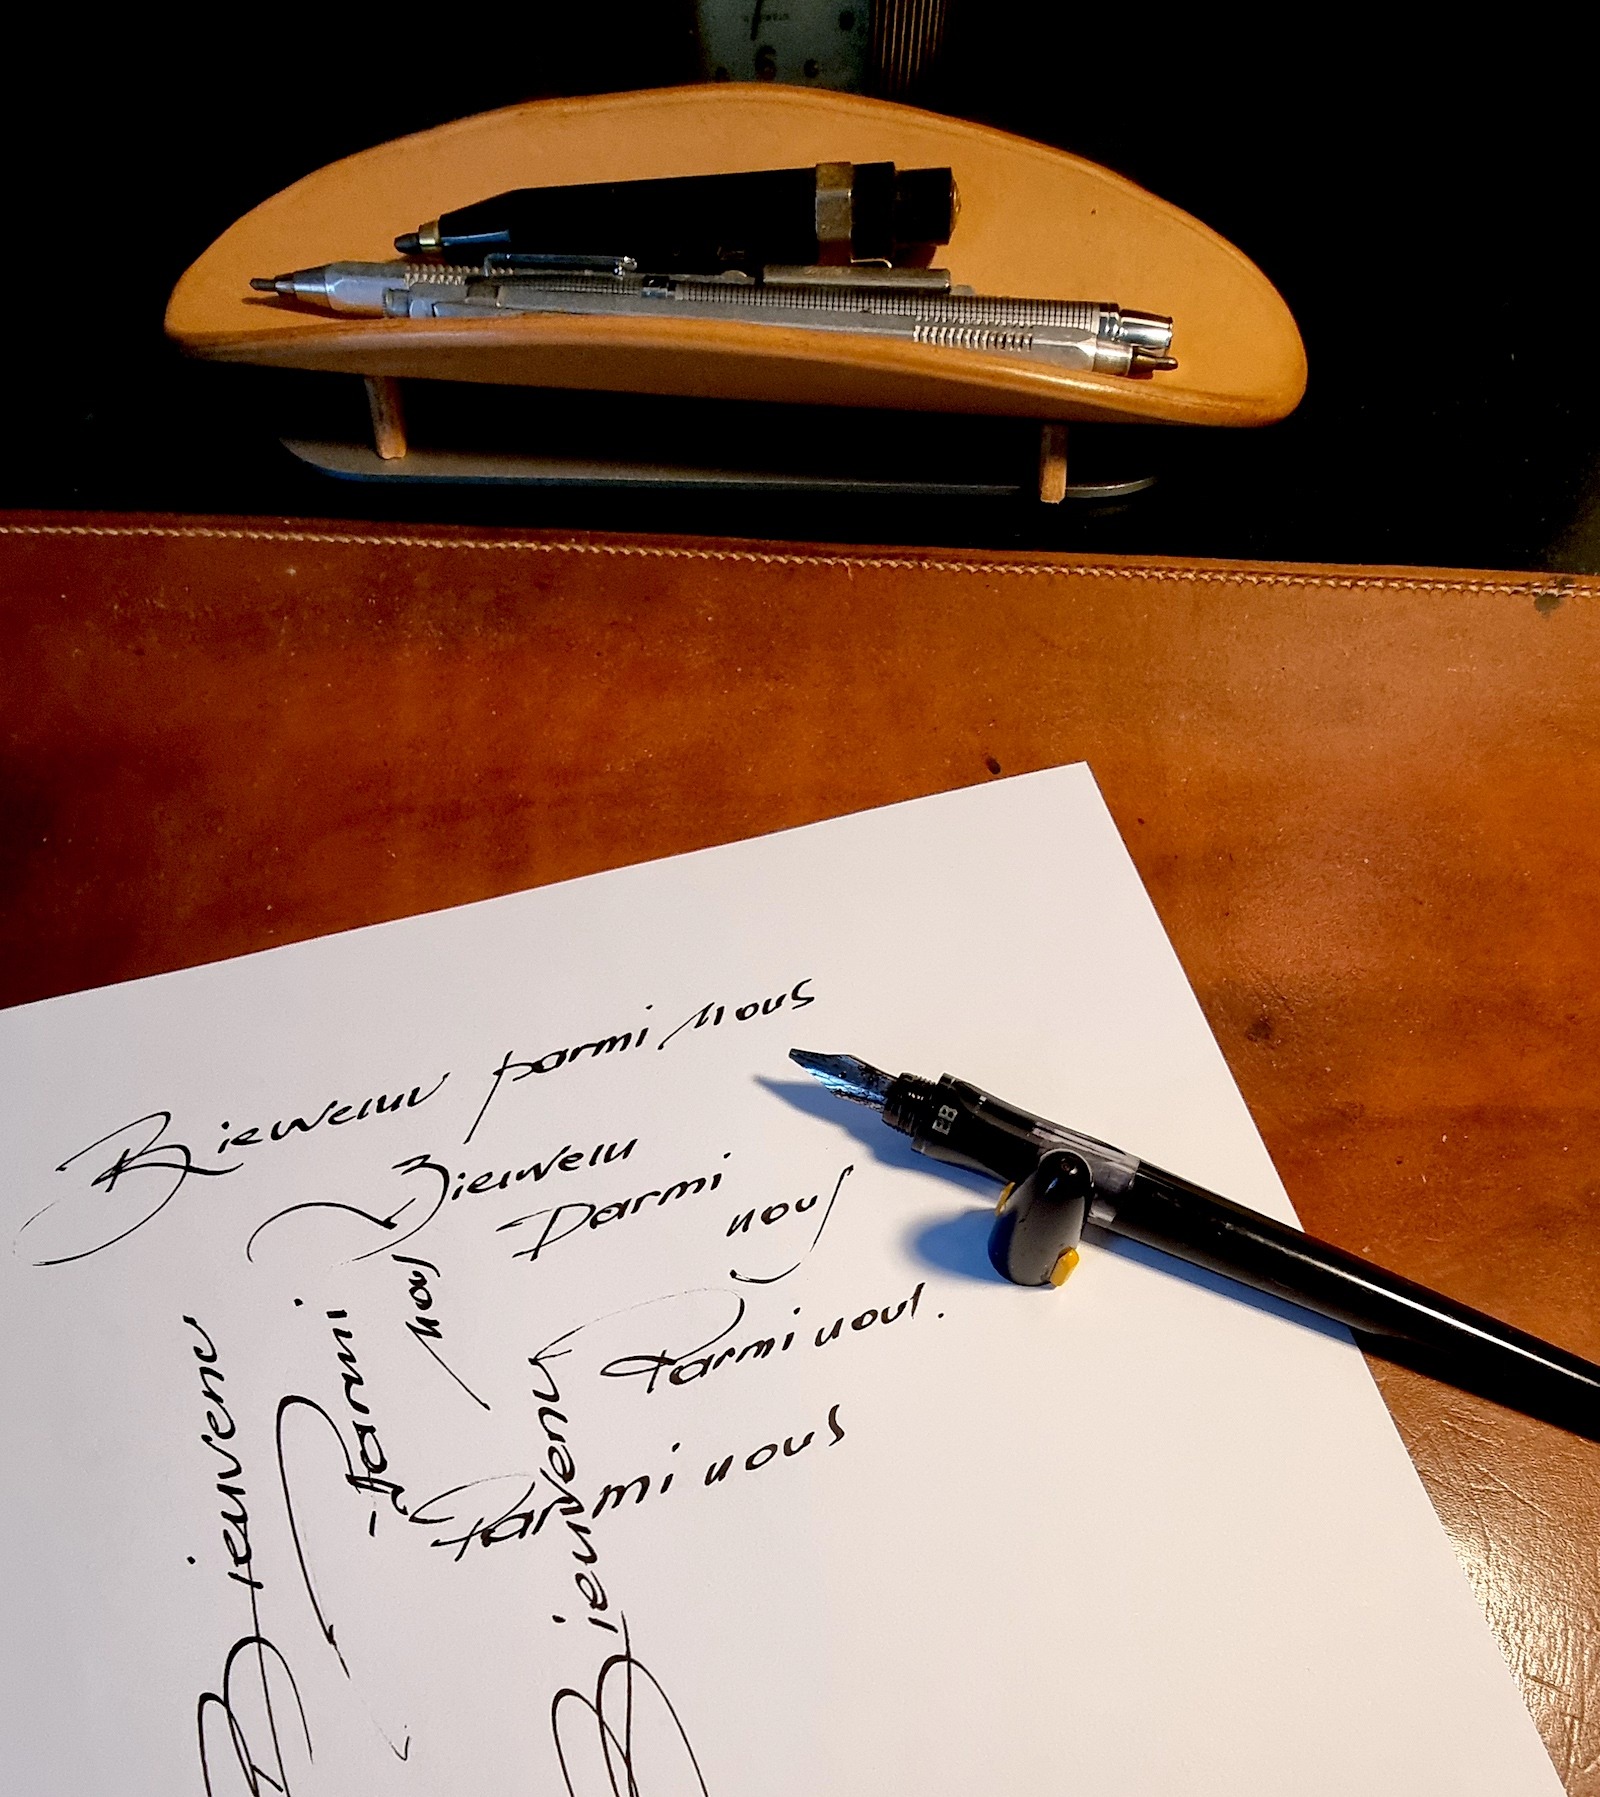 6
Bienvenu parmi nous
Bienvenu
Parmi
nous
Parmi
nous
Bienvenu
Parmi nous.
Bienvenu
Parmi nous
BB